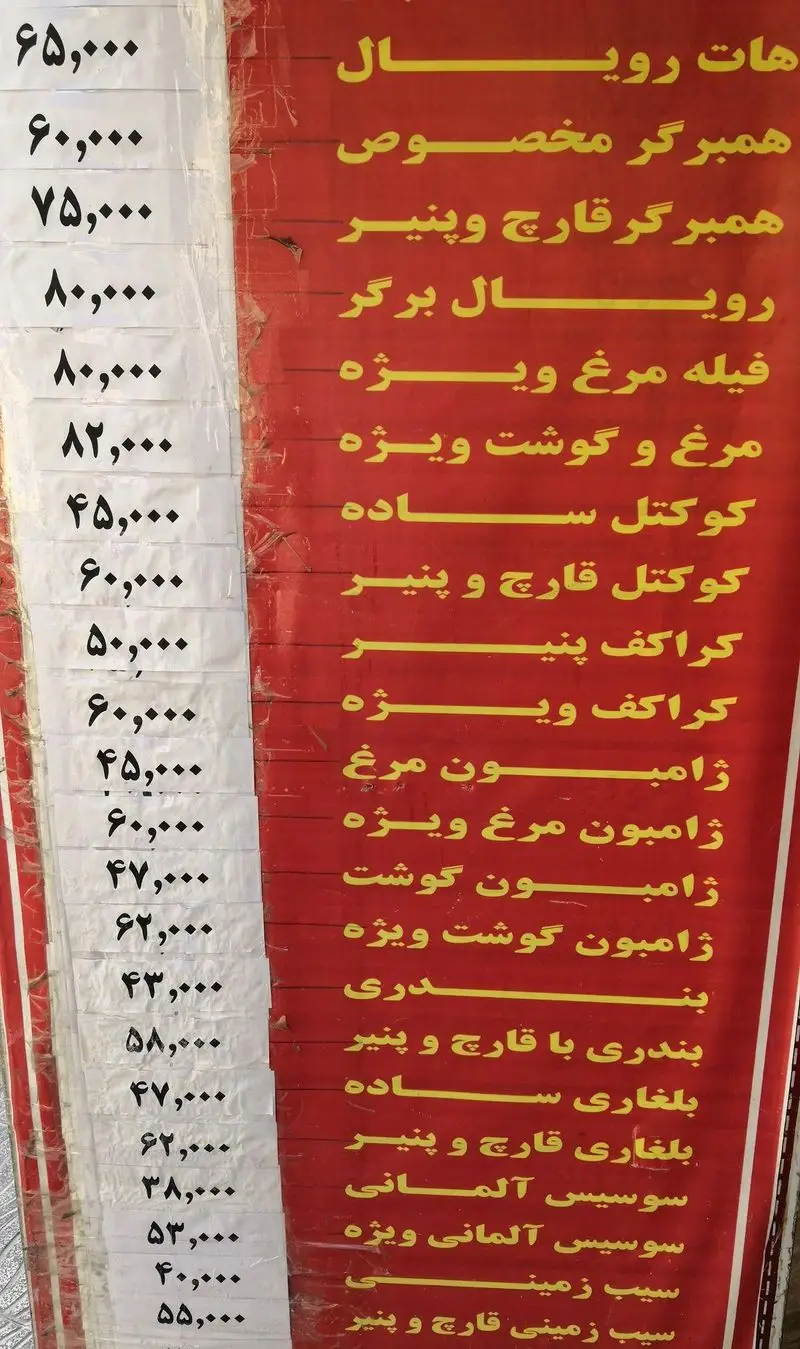 هات رویال ۶۵,۰۰۰
همبرگر مخصوص ۶۰,۰۰۰
همبرگر قارچ وپنیر ۷۵,۰۰۰
رویال برگر ۸۰,۰۰۰
فیله مرغ ویژه ۸۰,۰۰۰
مرغ و گوشت ویژه ۸۲,۰۰۰
کوکتل ساده ۴۵,۰۰۰
کوکتل قارچ و پنیر ۶۰,۰۰۰
کراکف پنیر ۵۰,۰۰۰
کراکف ویژه ۶۰,۰۰۰
ژامبون مرغ ۴۵,۰۰۰
ژامبون مرغ ویژه ۶۰,۰۰۰
ژامبون گوشت ۴۷,۰۰۰
ژامبون گوشت ویژه ۶۲,۰۰۰
بندری ۴۳,۰۰۰
بندری با قارچ و پنیر ۵۸,۰۰۰
بلغاری ساده ۴۷,۰۰۰
بلغاری قارچ و پنیر ۶۲,۰۰۰
سوسیس آلمانی ۳۸,۰۰۰
سوسیس آلمانی ویژه ۵۳,۰۰۰
سیب زمینی ۴۰,۰۰۰
سیب زمینی قارچ و پنیر ۵۵,۰۰۰